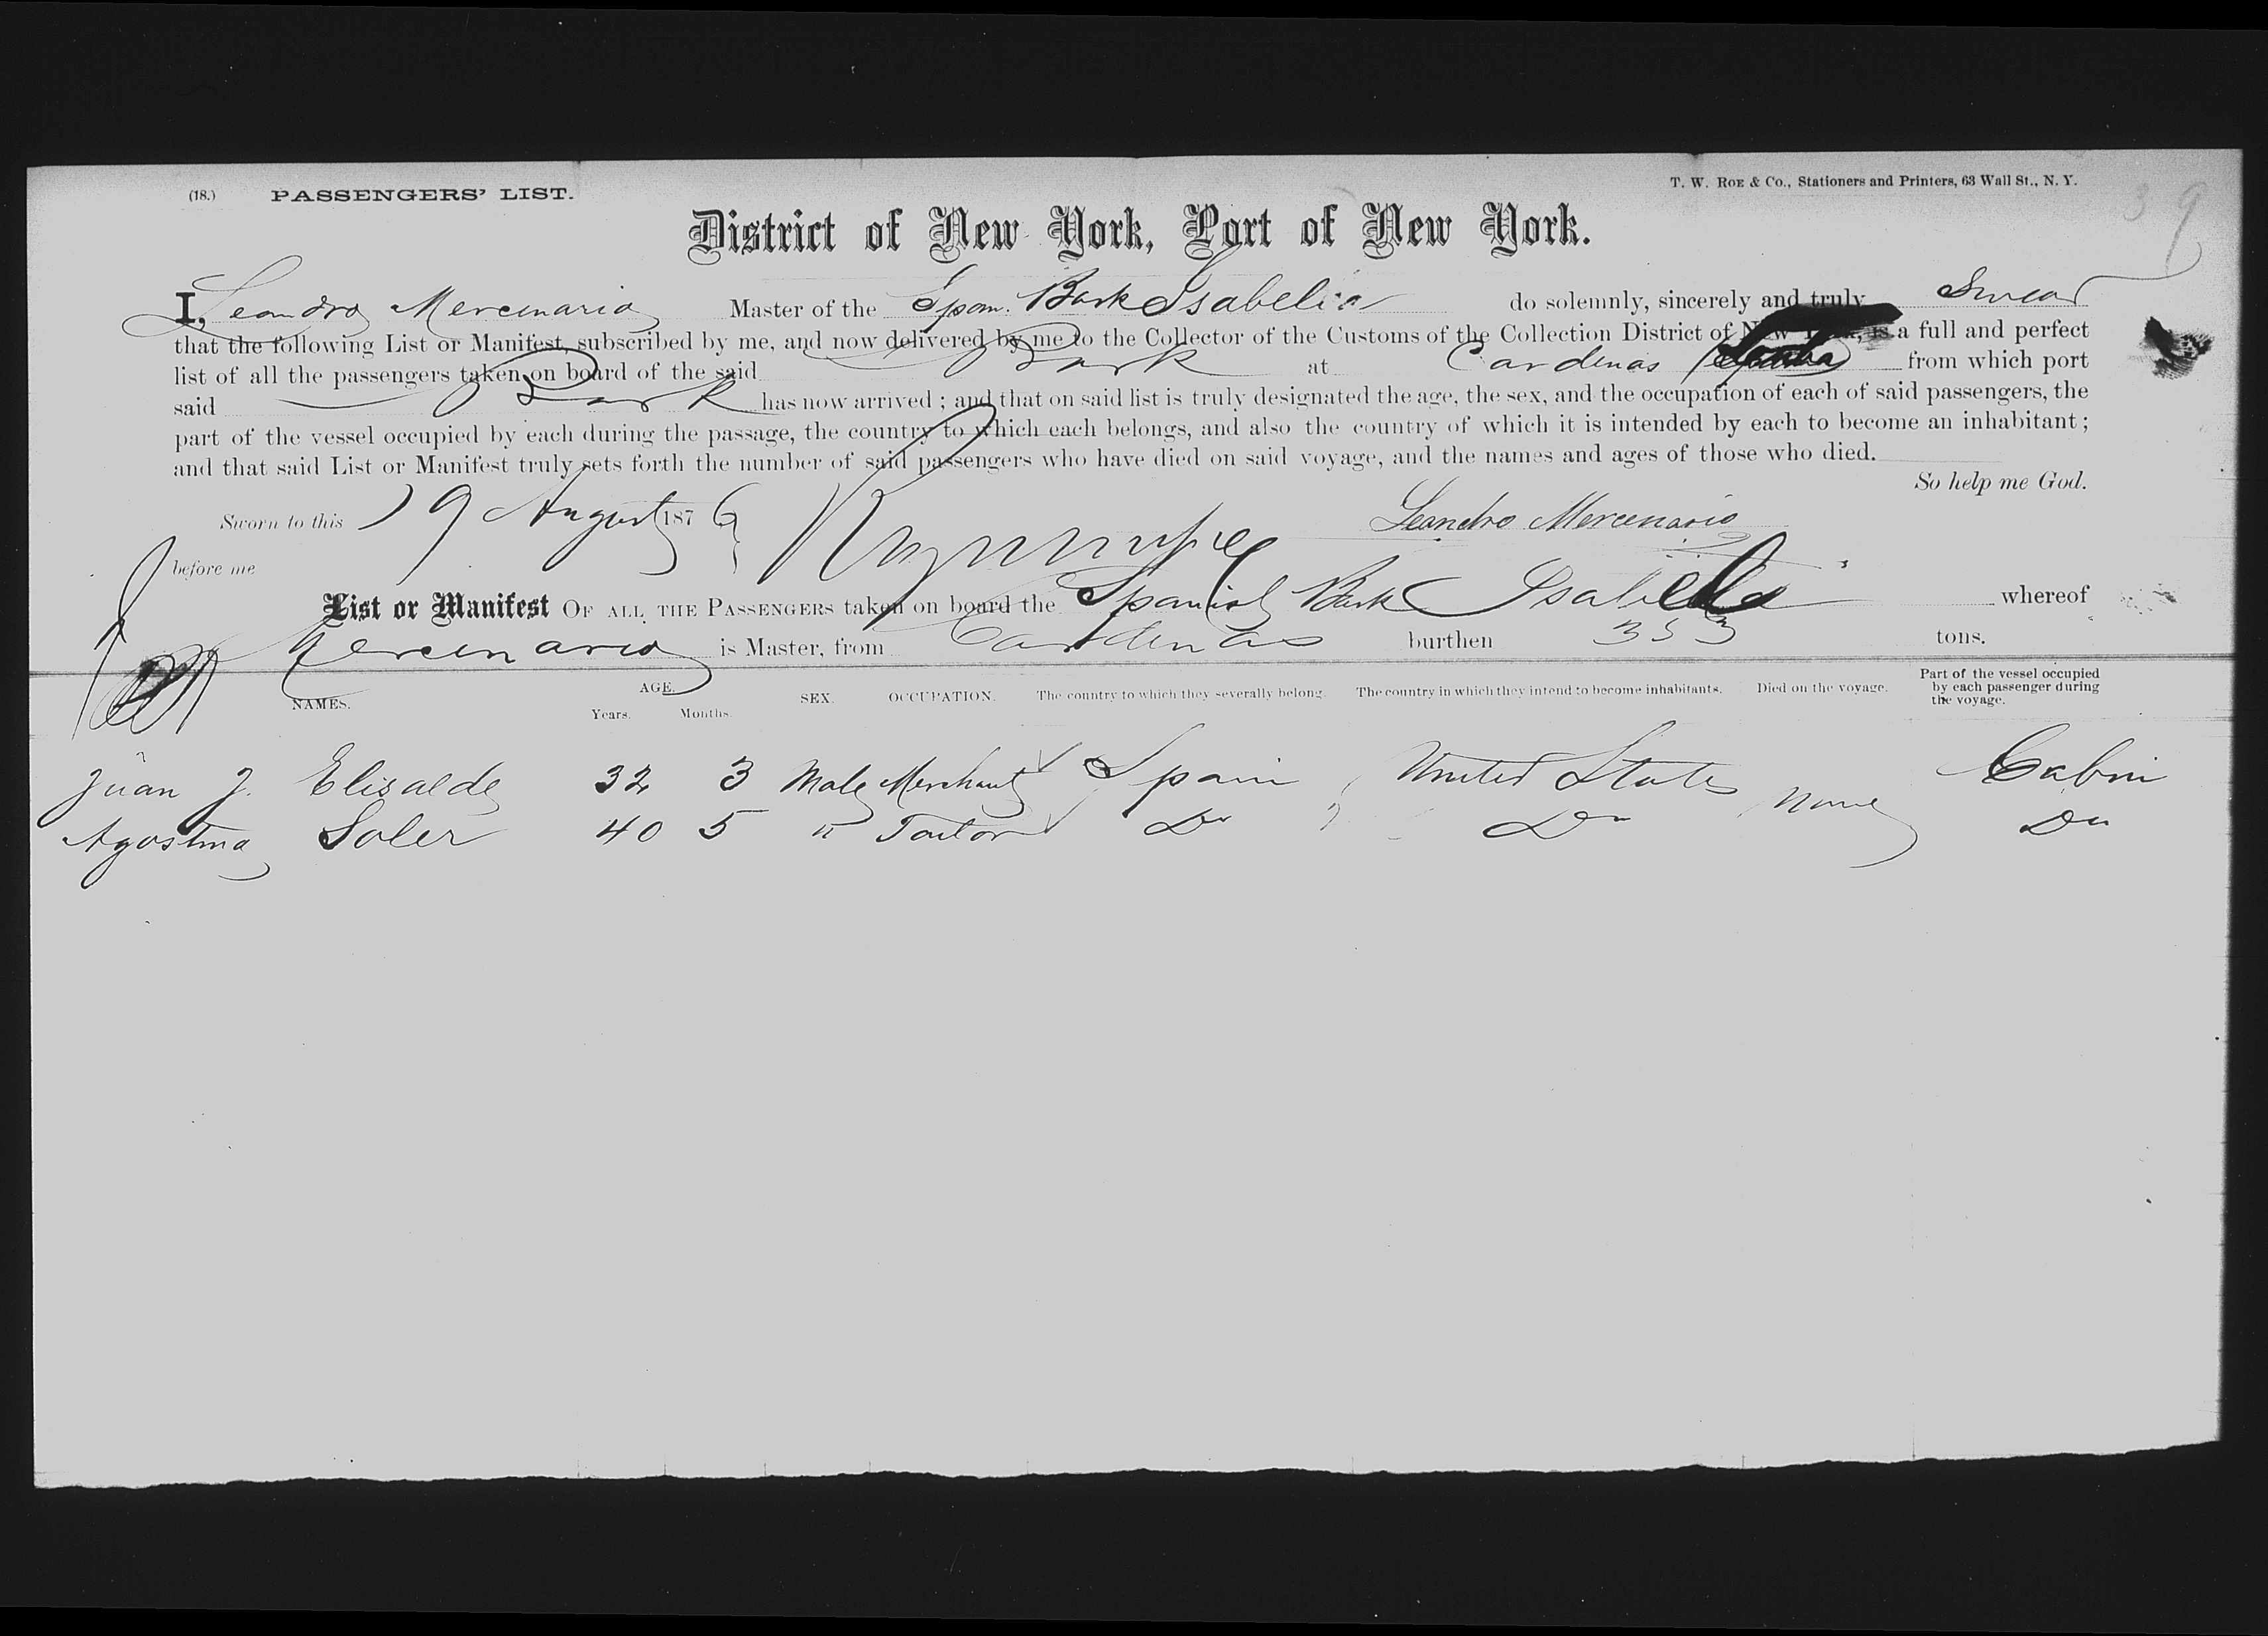 (18.) PASSENGERS' LIST. T. W. ROE & CO., Stationers and Printers, 63 Wall St., N. Y.
39
District of New York, Port of New York.
I, Leandro Mercenario Master of the Span. Bark Isabelia do solemnly, sincerely and truly Swear
that the following List or Manifest, subscribed by me, and now delivered by me to the Collector of the Customs of the Collection District of New York, is a full and perfect
list of all the passengers taken on board of the said Bark at Cardenas from which port
said Bark has now arrived ; and that on said list is truly designated the age, the sex, and the occupation of each of said passengers, the
part of the vessel occupied by each during the passage, the country to which each belongs, and also the country of which it is intended by each to become an inhabitant ;
and that said List or Manifest truly sets forth the number of said passengers who have died on said voyage, and the names and ages of those who died.
So help me God.
Sworn to this 19 August 1876 Leandro Mercenario
before me
List or Manifest OF ALL THE PASSENGERS taken on board the Spanish Bark Isabella whereof
Mercenario is Master, from Cardenas burthen 353 tons.
NAMES. AGE. Years. Months. SEX. OCCUPATION. The country to which they severally belong. The country in which they intend to become inhabitants. Died on the voyage. Part of the vessel occupied by each passenger during the voyage.
Juan J. Elisalde 32 3 Male Merchant Spain United States none Cabin
Agostino Soler 40 5 " Tailor Do Do Do